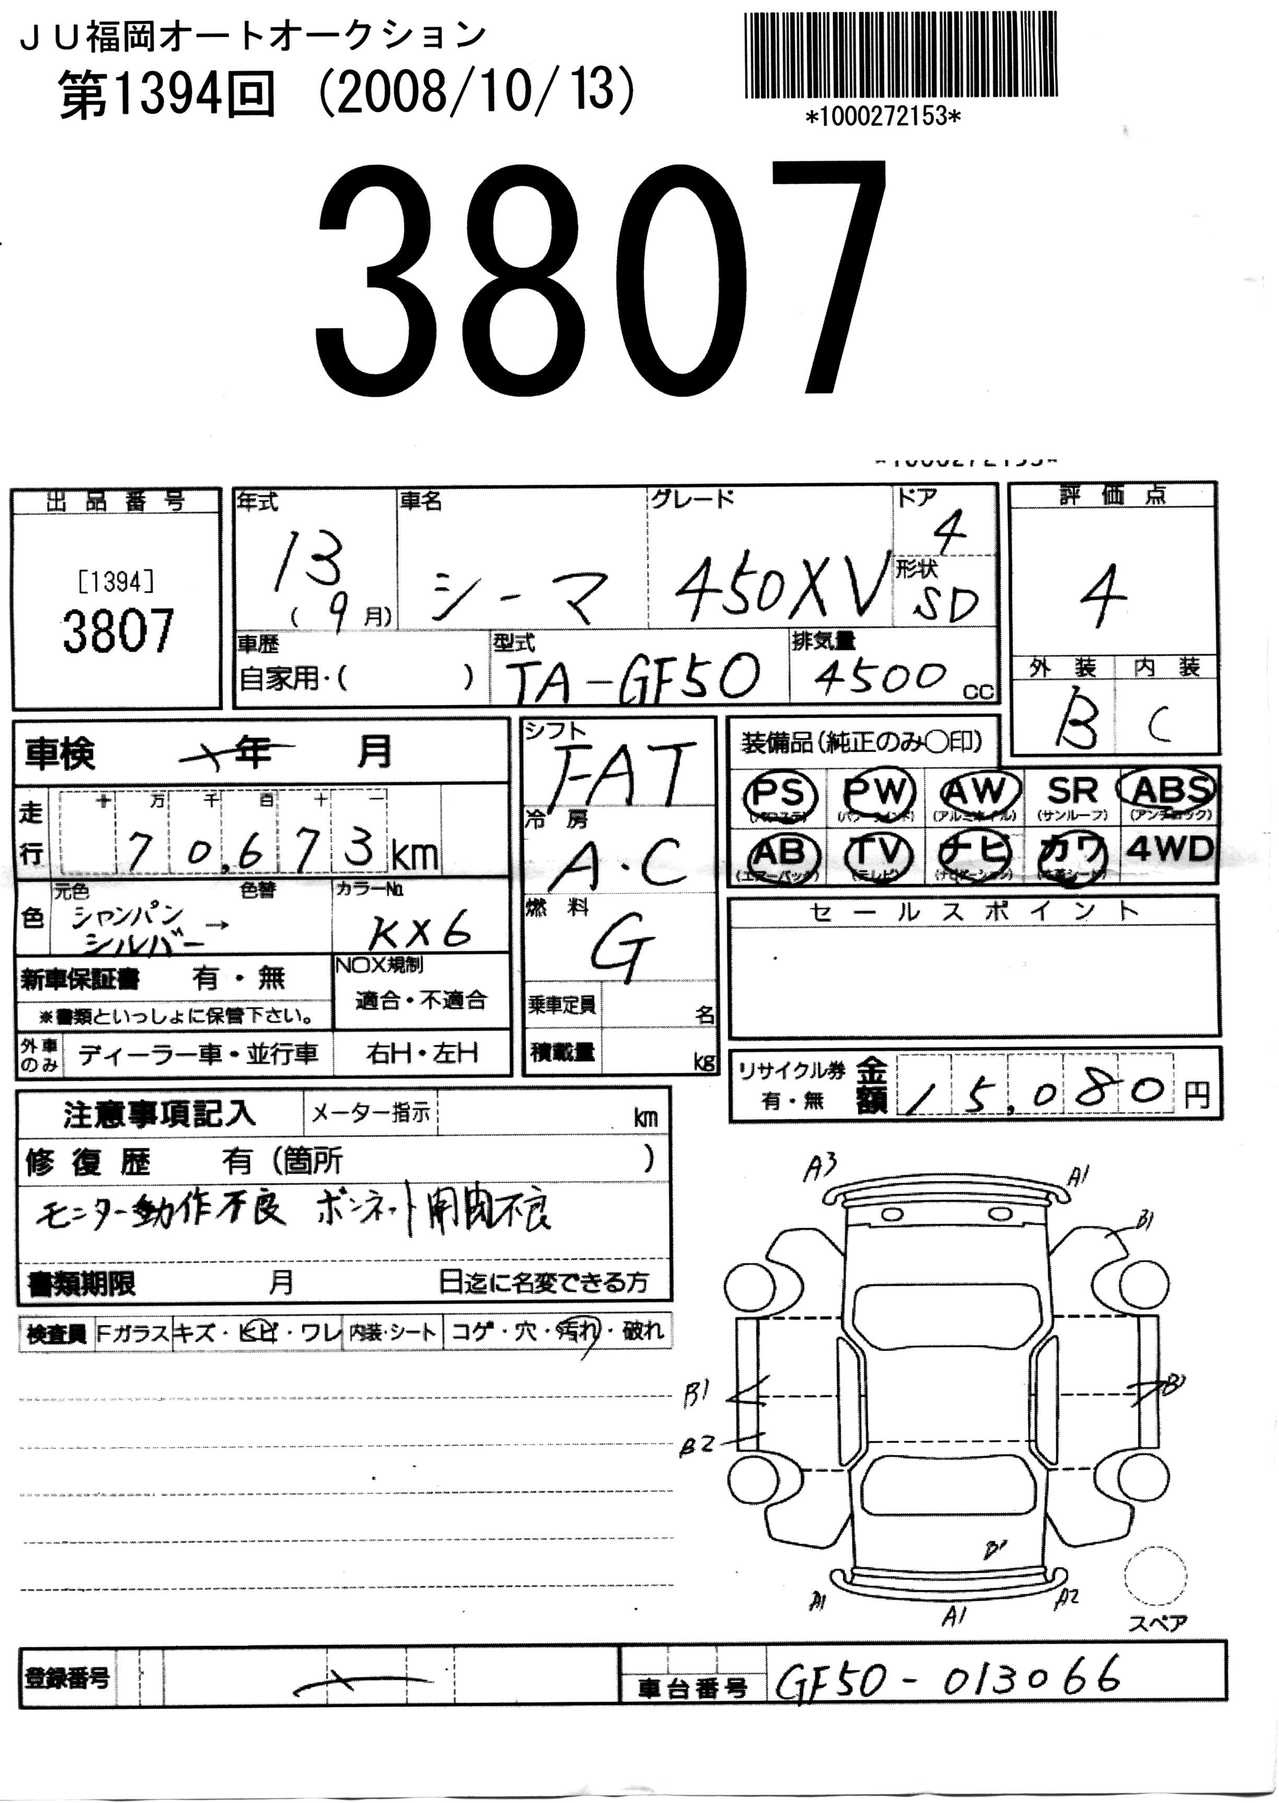 ＪＵ福岡オートオークション
第1394回 (2008/10/13)
*1000272153*
3807
*1000272153*
出品番号
[1394]
3807
年式
13
( 9 月)
車名
シーマ
グレード
450XV
ドア
4
形状
SD
車歴
自家用・( )
型式
TA-GF50
排気量
4500 CC
評価点
4
外装 内装
B C
車検 年 月
走行
十 万 千 百 十 一
70,673 km
色
元色 色替 カラーNo.
シャンパン
シルバー →
KX6
新車保証書 有・無
※書類といっしょに保管下さい。
NOX規制
適合・不適合
外車のみ ディーラー車・並行車 右H・左H
シフト
FAT
冷房
A・C
燃料
G
乗車定員 名
積載量 kg
装備品(純正のみ○印)
PS PW AW SR ABS
(パワステ) (パワーウインド) (アルミホイル) (サンルーフ) (アンチロック)
AB TV ナビ カワ 4WD
(エアーバック) (テレビ) (ナビゲーション) (本革シート)
セールスポイント
リサイクル券
有・無
金額 15,080 円
注意事項記入 メーター指示 km
修復歴 有(箇所 )
モニター動作不良 ボンネット開閉不良
書類期限 月 日迄に名変できる方
検査員 Fガラス キズ・ヒビ・ワレ 内装・シート コゲ・穴・汚れ・破れ
A3 A1
B1
B1 B1
B2
B1
A1 A1 A2
スペア
登録番号
車台番号 GF50-013066